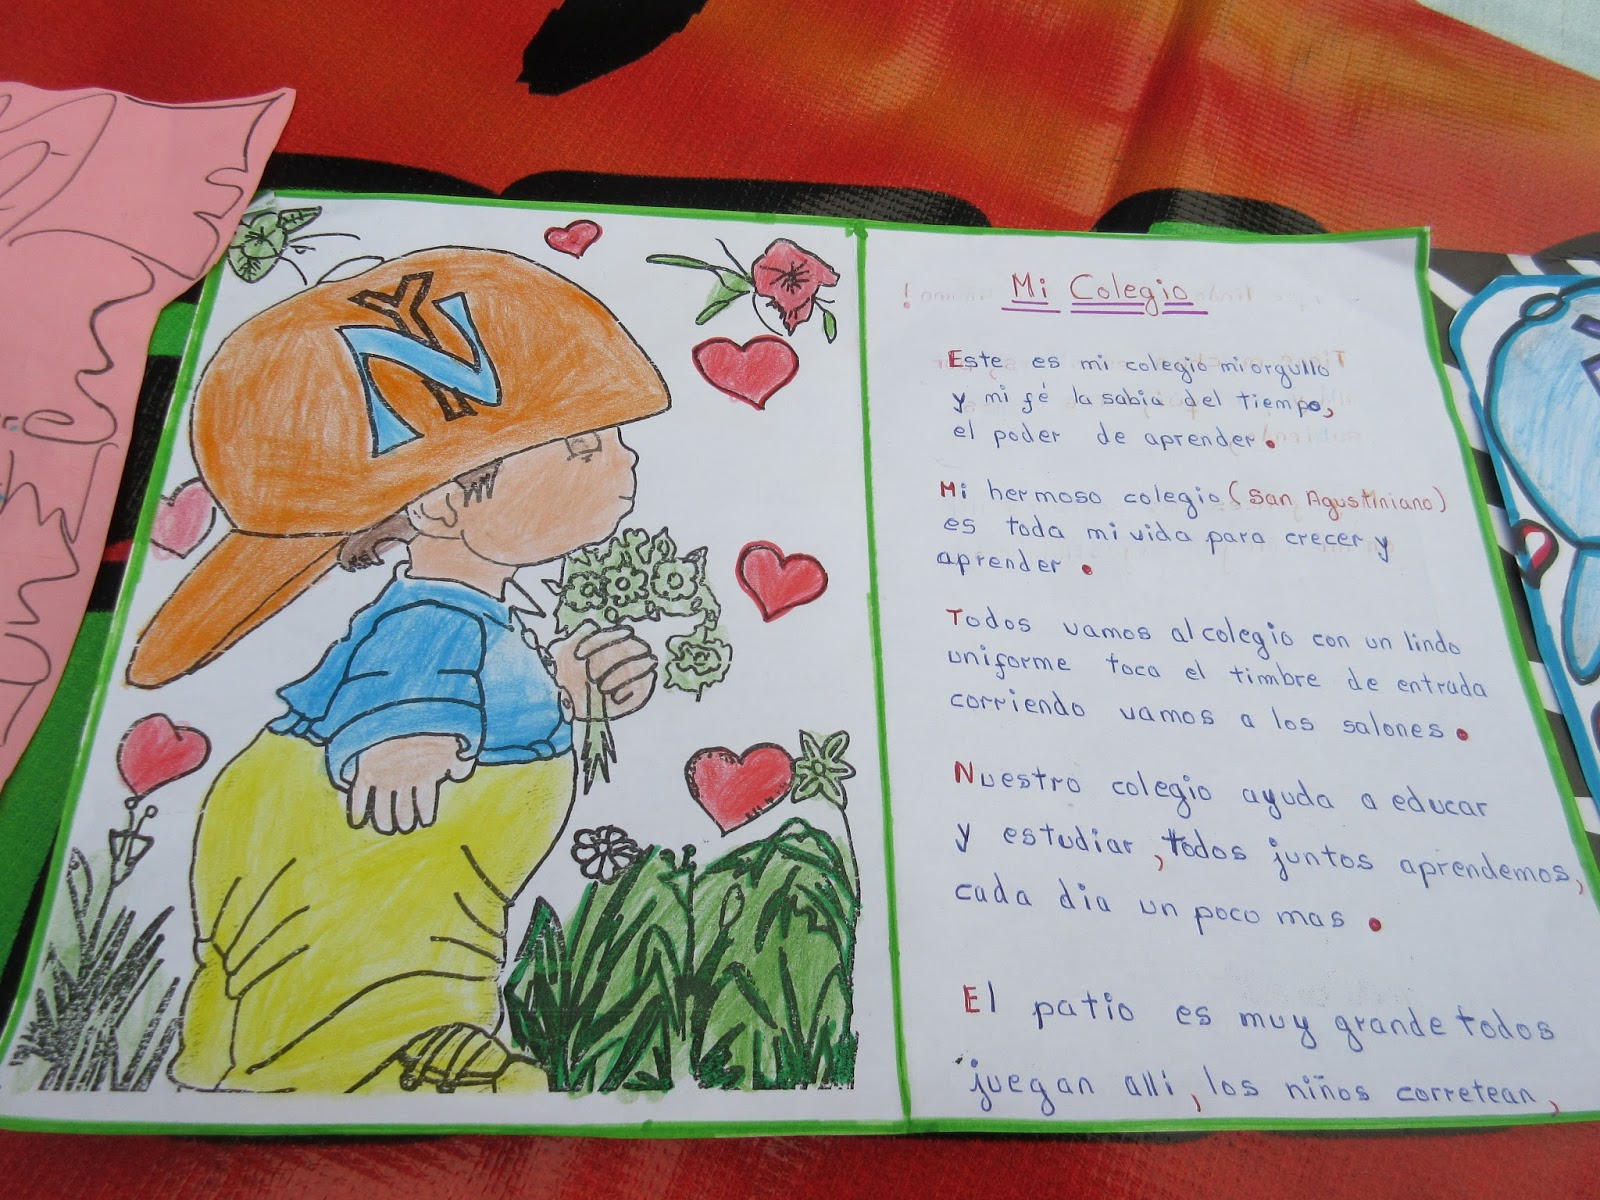 NY
Mi Colegio
Este es mi colegio mi orgullo
y mi fé la sabia del tiempo,
el poder de aprender.
Mi hermoso colegio (San Agustiniano)
es toda mi vida para crecer y
aprender.
Todos vamos al colegio con un lindo
uniforme toca el timbre de entrada
corriendo vamos a los salones.
Nuestro colegio ayuda a educar
y estudiar, todos juntos aprendemos,
cada dia un poco mas.
El patio es muy grande todos
juegan alli, los niños corretean,